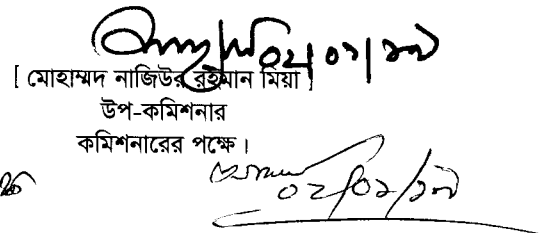 ০২/০১/১৭
[ মোহাম্মদ নাজিউর রহমান মিয়া ]
উপ-কমিশনার
কমিশনারের পক্ষে।
০২/০১/১৭